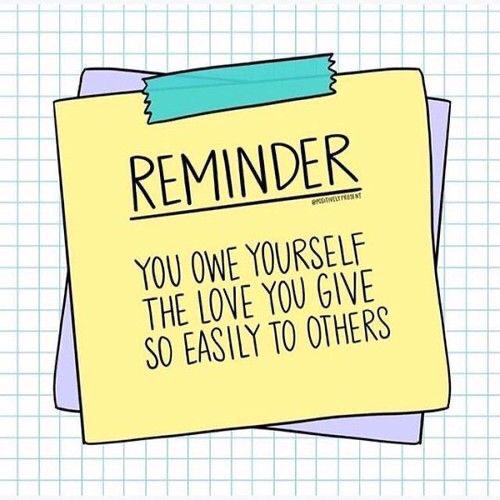 REMINDER
@POSITIVELYPRESENT
YOU OWE YOURSELF
THE LOVE YOU GIVE
SO EASILY TO OTHERS